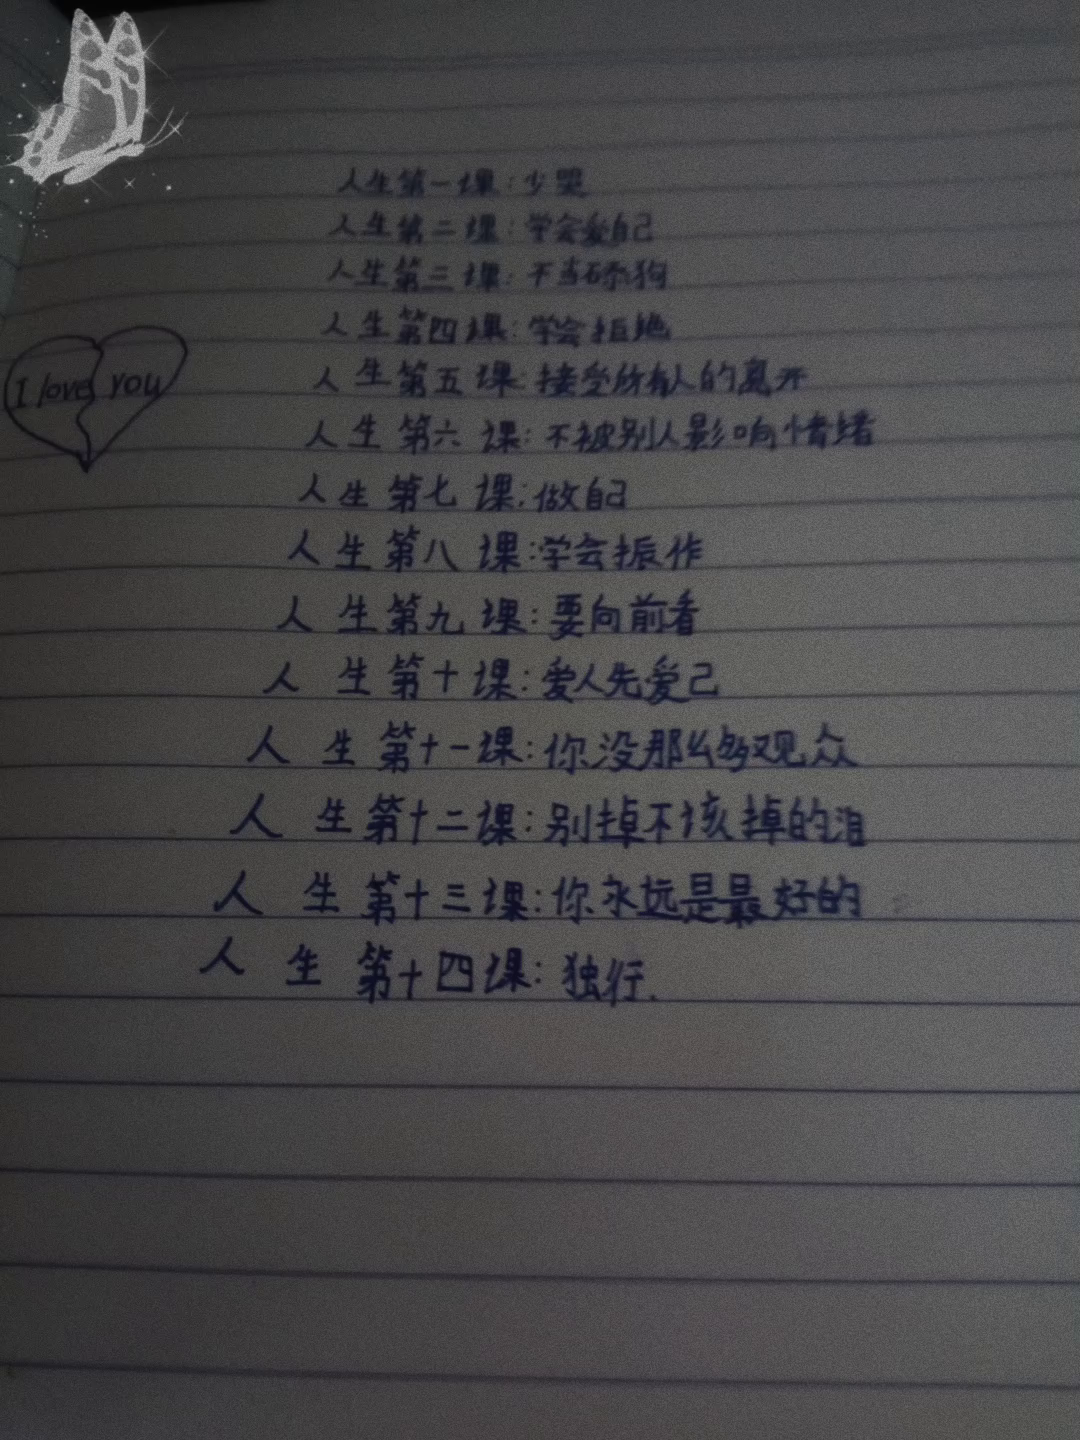 人生第一课:少哭
人生第二课:学会爱自己
人生第三课:不当舔狗
人生第四课:学会拒绝
I love you
人生第五课:接受所有人的离开
人生第六课:不被别人影响情绪
人生第七课:做自己
人生第八课:学会振作
人生第九课:要向前看
人生第十课:爱人先爱己
人生第十一课:你没那么多观众
人生第十二课:别掉不该掉的泪
人生第十三课:你永远是最好的
人生第十四课:独行.